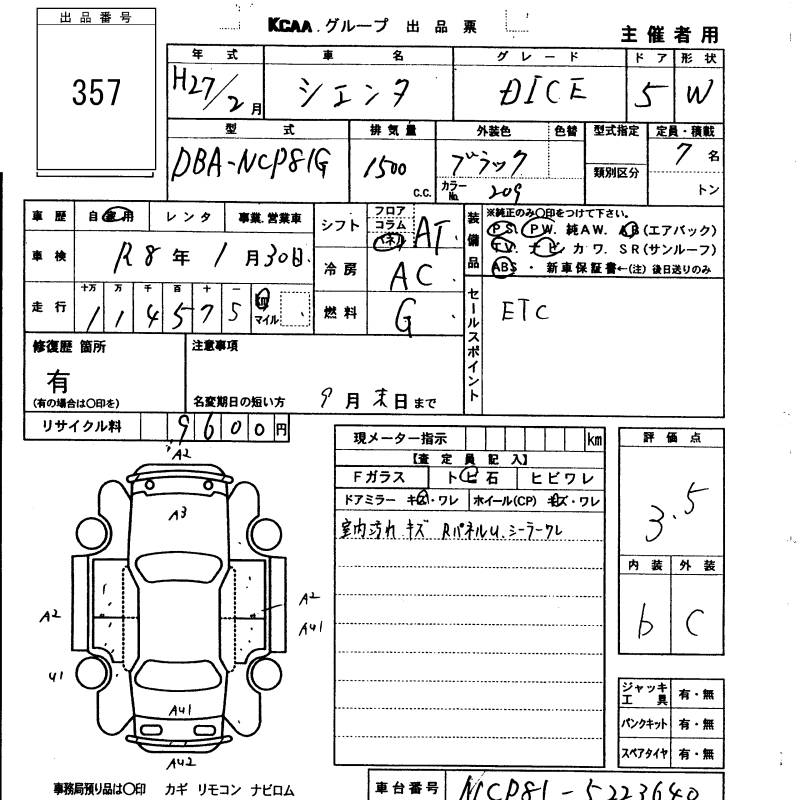 KCAA グループ 出品票
主催者用
出品番号
357
年式 車名 グレード ドア 形状
H27/2月 シエンタ DICE 5 W
型式 排気量 外装色 色替 型式指定 定員・積載
DBA-NCP81G 1500 C.C. ブラック 7名
カラーNo. 209 類別区分 トン
車歴 自家用 レンタ 事業.営業車
車検 R8年1月30日
走行 十万 万 千 百 十
1 1 4 5 7 5 km マイル
シフト フロア コラム AT
冷房 AC
燃料 G
装備品 ※純正のみ○印をつけて下さい。
PS. PW. 純AW. AB(エアバック)
TV. ナビ カワ. SR(サンルーフ)
ABS・新車保証書←(注)後日送りのみ
セールスポイント
ETC
修復歴 箇所
有
(有の場合は○印を)
注意事項
名変期日の短い方 9月末日まで
リサイクル料 9600円
現メーター指示 km
【査定員記入】
Fガラス トビ石 ヒビワレ
ドアミラー キズ・ワレ ホイール(CP) キズ・ワレ
室内汚れ キズ RパネルU.シーラークレ
評価点
3.5
内装 外装
b C
ジャッキ工具 有・無
パンクキット 有・無
スペアタイヤ 有・無
A2
A3
A2
A2
A41
41
A41
A42
事務局預り品は○印 カギ リモコン ナビロム
車台番号 NCP81-5223640